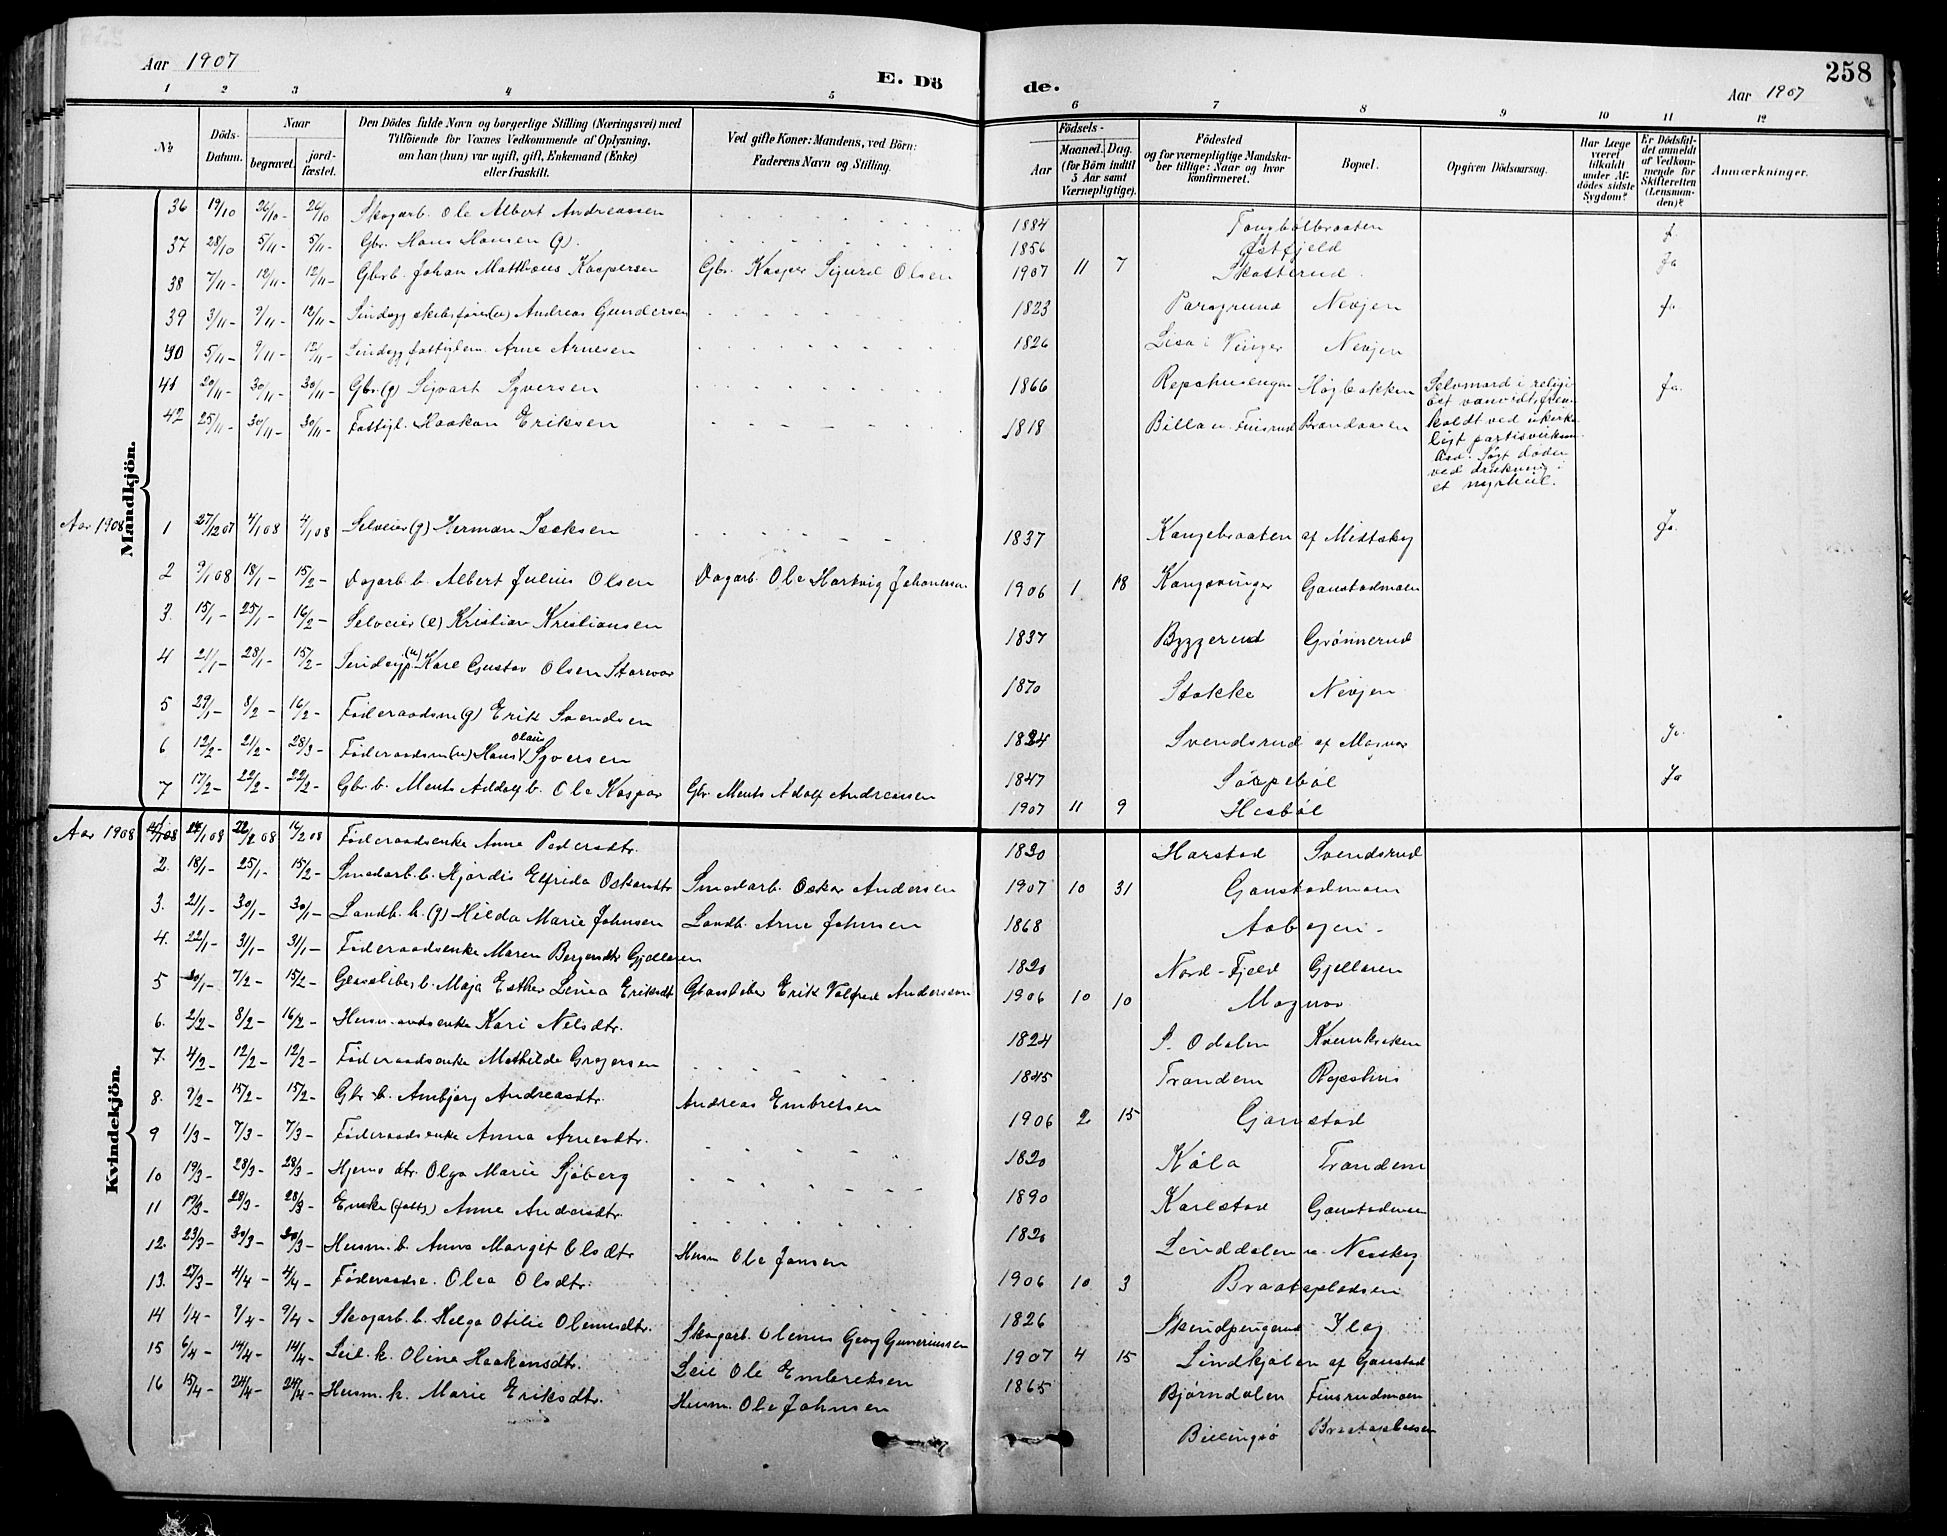 Aar 1907
E. Dö
de.
258
Aar 1907
1 2 3 4 5 6 7 8 9 10 11 12
№
Döds-Datum.
Naar
begravet.
jord-fæstet.
Den Dödes fulde Navn og borgerlige Stilling (Næringsvei) med
Tilföiende for Voxnes Vedkommende af Oplysning,
om han (hun) var ugift, gift, Enkemand (Enke)
eller fraskilt.
Ved gifte Koner: Mandens, ved Börn:
Faderens Navn og Stilling.
Födsels-
Aar
Maaned. Dag.
(for Börn indtil
5 Aar samt
Værnepligtige).
Födested
og for værnepligtige Mandska-
ber tillige: Naar og hvor
konfirmeret.
Bopæl.
Opgiven Dödsaarsag.
Har Læge
været
tilkaldt
under Af-
dödes sidste
Sygdom?
Er Dödsfal-
det anmeldt
af Vedkom-
mende for
Skifteretten
(Lensman-
den)?
Anmærkninger.
Mandkjön.
36 19/10 26/10- 26/10 Skogarb. Ole Albert Andreassen 1884 Tonsbølbraaten J.
37 28/10 5/11- 5/11- Gbr. Hans Hansen (g). 1856 Østfjeld
38 7/11- 12/11- 12/11- Gbrb. Johan Matthæus Kaspersen Gbr. Kasper Sigurd Olsen 1907 11 7 Skotterud. Ja
39 3/11- 9/11- 12/11- Sindsyg skibsfører(u) Andreas Gundersen 1823 Porsgrund Nevjen Ja.
40 5/11- 9/11- 12/11- Sindsyg fattiglem. Arne Arnesen 1826 Lisa i Vinger Nevjen
41 20/11- 30/11- 30/11- Gbr(g) Sigvart Syversen 1866 Repshusengen Høgbakken Selvmord i religi Ja.
øst vanvidt, frem
42 25/11- 30/11- 30/11- Fattigl. Haakon Eriksen 1818 Billa u. Finsrud Brandaasen kaldt ved ukirke-
ligt partisvirksom-
hed. Søgt døden
ved drukning i
et myrhul.
Aar 1908
1 27/12 07 4/1 08 4/1 08 Selveier (g) Herman Isaksen 1837 Kangebraaten af Midtskog Ja.
2 9/1 08 18/1- 15/2- Dagarb. b. Albert Julius Olsen Dagarb. Ole Hartvig Johansen 1906 1 18 Kongsvinger Gaustadmoen
3. 15/1- 25/1- 16/2- Selveier (e) Kristian Kristiansen 1837 Byggerud Grønnerud
4 21/1- 28/1- 15/2- Sindsyg (u) Karl Gustav Olsen Storevar 1870 Stokke Nevjen
5 29/1- 8/2- 16/2- Føderaadsm (g) Erik Svendsen 1824 Svendsrud af Magnor Ja.
6 12/2- 21/2- 28/3- Føderaadsm (u) Hans Olaus Syversen 1847 Søppebøl Ja
7 17/2- 22/2- 22/2- Gbr. b. Ments Addolf b. Ole Kaspar Gbr. Ments Adolf Andreassen 1907 11 9 Hesbøl
Kvindekjön.
Aar 1908
22/2 08 16/2 08 Føderaadsenke Anne Pedersdtr. 1820 Harstad Svendsrud
2. 18/1- 25/1- 15/2- Smedarb. b. Hjørdis Elfrida Oskarsdtr Smedarb. Oskar Andersen 1907 10 31 Gaustadmoen
3. 21/1- 30/1- 30/1- Landh. k. (g) Hilda Marie Johnsen Landh. Arne Johnsen 1868 Aabogen-
4. 22/1- 31/1- 31/1- Føderaadsenke Maren Bergersdtr Gjellaren 1820 Nord-Fjeld Gjellaren
5 30/1- 7/2- 15/2- Glassliber b. Maja Esther Linea Eriksdtr Glassliber Erik Valfred Andersson 1906 10 10 Magnor
6. 2/2- 8/2- 16/2- Husmandsenke Kari Nelsdtr. 1824 S. Odalen Kvernbakken
7. 4/2- 12/2- 12/2- Føderaadsenke Mathilde Gregersen 1845 Trandem Repshus
8. 9/2- 15/2- 15/2- Gbr b. Ambjørg Andreasdtr. Andreas Embretsen 1906 2 15 Gaustad
9 1/3- 7/3- 7/3- Føderaadsenke Anna Arnesdtr. 1820 Køla Trandem
10 19/3- 28/3- 28/3- Hjems dtr. Olga Marie Sjøberg 1890 Karlstad Gaustadmoen
11 19/3- 28/3- 28/3- Enke (fatt) Anne Andersdtr. 1820 Linddalen u. Nesskog
12. 23/3- 30/3- 30/3- Husm. b. Anna Margit Olsdtr Husm Ole Jansen 1906 10 3 Braatepladsen
13. 27/3- 4/4- 4/4- Føderaadse. Olea Olsdtr. 1826 Ilag
14 1/4- 9/4- 9/4- Skogarb. b. Helga Otilie Olausdtr. Skogarb. Olaus Georg Guneriussen 1907 4 15 Lindkjølen af Gaustad
15 6/4- 14/4- 14/4- Leil. k. Oline Haakensdtr. Leil Ole Embretsen 1865 Bjørndalen Finsrudmoen
16 15/4- 24/4- 24/4- Husm. k. Marie Eriksdtr. Husm. Ole Johnsen Billingsø Braatepladsen